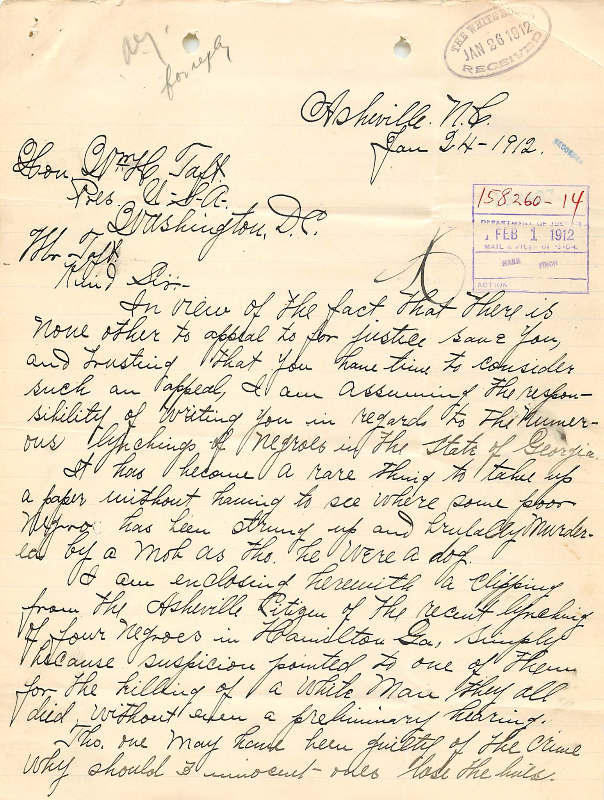 for reply
THE WHITE HOUSE
JAN 26 1912
RECEIVED
Asheville. N.C.
Jan 24-1912.
RECORDED
Hon. Wm H. Taft
Pres. U-S-A.
Washington, D.C.
158260-14
DEPARTMENT OF JUSTICE
FEB 1 1912
MAIL & FILES DIVISION
ACTION
Mr Taft.
Kind Sir-
In view of the fact that there is
none other to appeal to for justice save you,
and trusting that you have time to consider
such an appeal, I am assuming the respon-
sibility of writing you in regards to the numer-
ous lynchings of Negroes in the State of Georgia.
It has become a rare thing to take up
a paper without having to see where some poor
Negro has been strung up and brutally murder-
ed by a mob as tho. he were a dog.
I am enclosing herewith a clipping
from the Asheville Citizen of the recent lynching
of four Negroes in Hamilton Ga, simply
because suspicion pointed to one of them
for the killing of a white man they all
died without even a preliminary hearing.
Tho. one may have been guilty of the crime
why should 3 innocent-ones lose the lives.